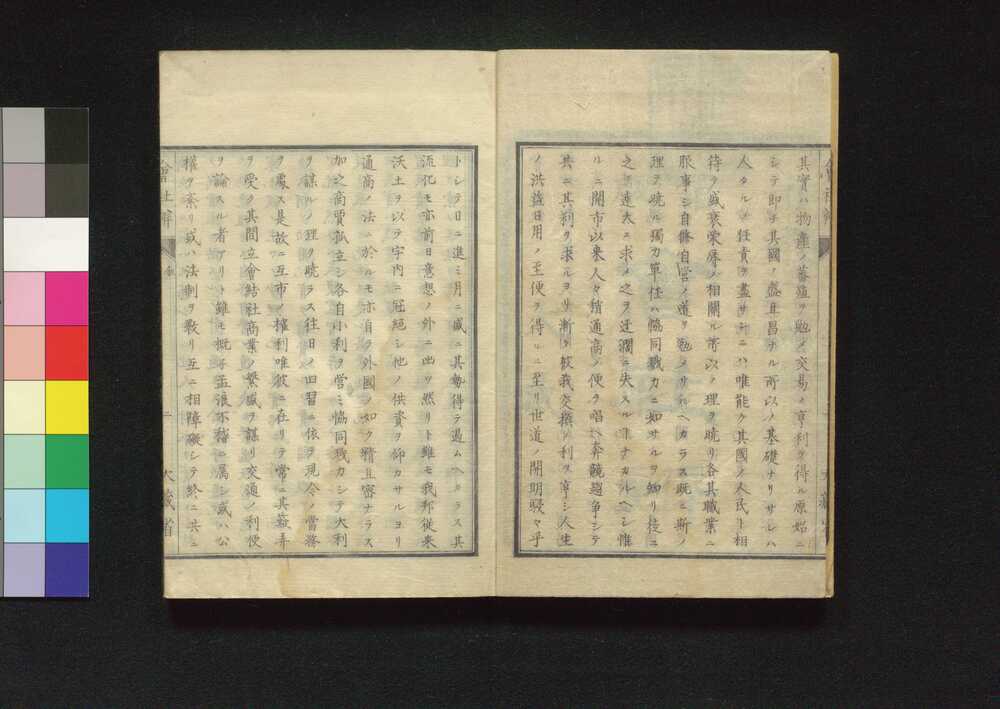 其實ハ物產ノ蕃殖ヲ勉メ交易ノ亨利ヲ得ル原始ニ
シテ即チ其國ノ盛且昌ナル所以ノ基礎ナリサレハ
人タルノ任責ヲ盡サンニハ唯能ク其國ノ人民ト相
待ク盛衰榮辱ノ相關ル所以ノ理ヲ曉リ各其職業ニ
服事シ自脩自營ノ道ヲ勉メサルヘカラス既ニ斯ノ
理ヲ曉ル獨力單任ハ協同戮力ニ如サルヲ知リ徒ニ
之ヲ遠大ニ求メ之ヲ迂濶ニ失スル ナカルヘシ惟
ルニ開市以來人々稍通商ノ便ヲ唱ヘ奔競趨爭シテ
共ニ其利ヲ求ルヨリ漸ク彼我交際ノ利ヲ享シ人生
ノ洪益日用ノ至便ヲ得ルニ至リ世道ノ開明駸々乎
トシテ日ニ進ミ月ニ盛ニ其勢得テ遏ムヘカラス其
流化モ亦前日意想ノ外ニ出ツ然リト雖モ我邦從來
沃土ヲ以テ宇内ニ冠絕シ他ノ供資ヲ仰カサルヨリ
通商ノ法ニ於ルモ亦自ラ外國ノ如ク精且密ナラス
加之商賈孤立シ各自小利ヲ營ミ協同戮力シテ大利
ヲ謀ルノ理ヲ曉ラス往日ノ旧習ニ依ヲ現今ノ當務
ヲ處ス是故ニ互市ノ權利唯彼ニ在リテ常ニ其欺弄
ヲ受ク其間立會結社商業ノ繁盛ヲ謀リ交通ノ利便
ヲ論スル者アリト雖モ概子孟浪不稽ニ属シ或ハ公
權ヲ紊リ或ハ法制ヲ斁リ互ニ相障礙シテ終ニ共ニ
會社辨
二
大藏省